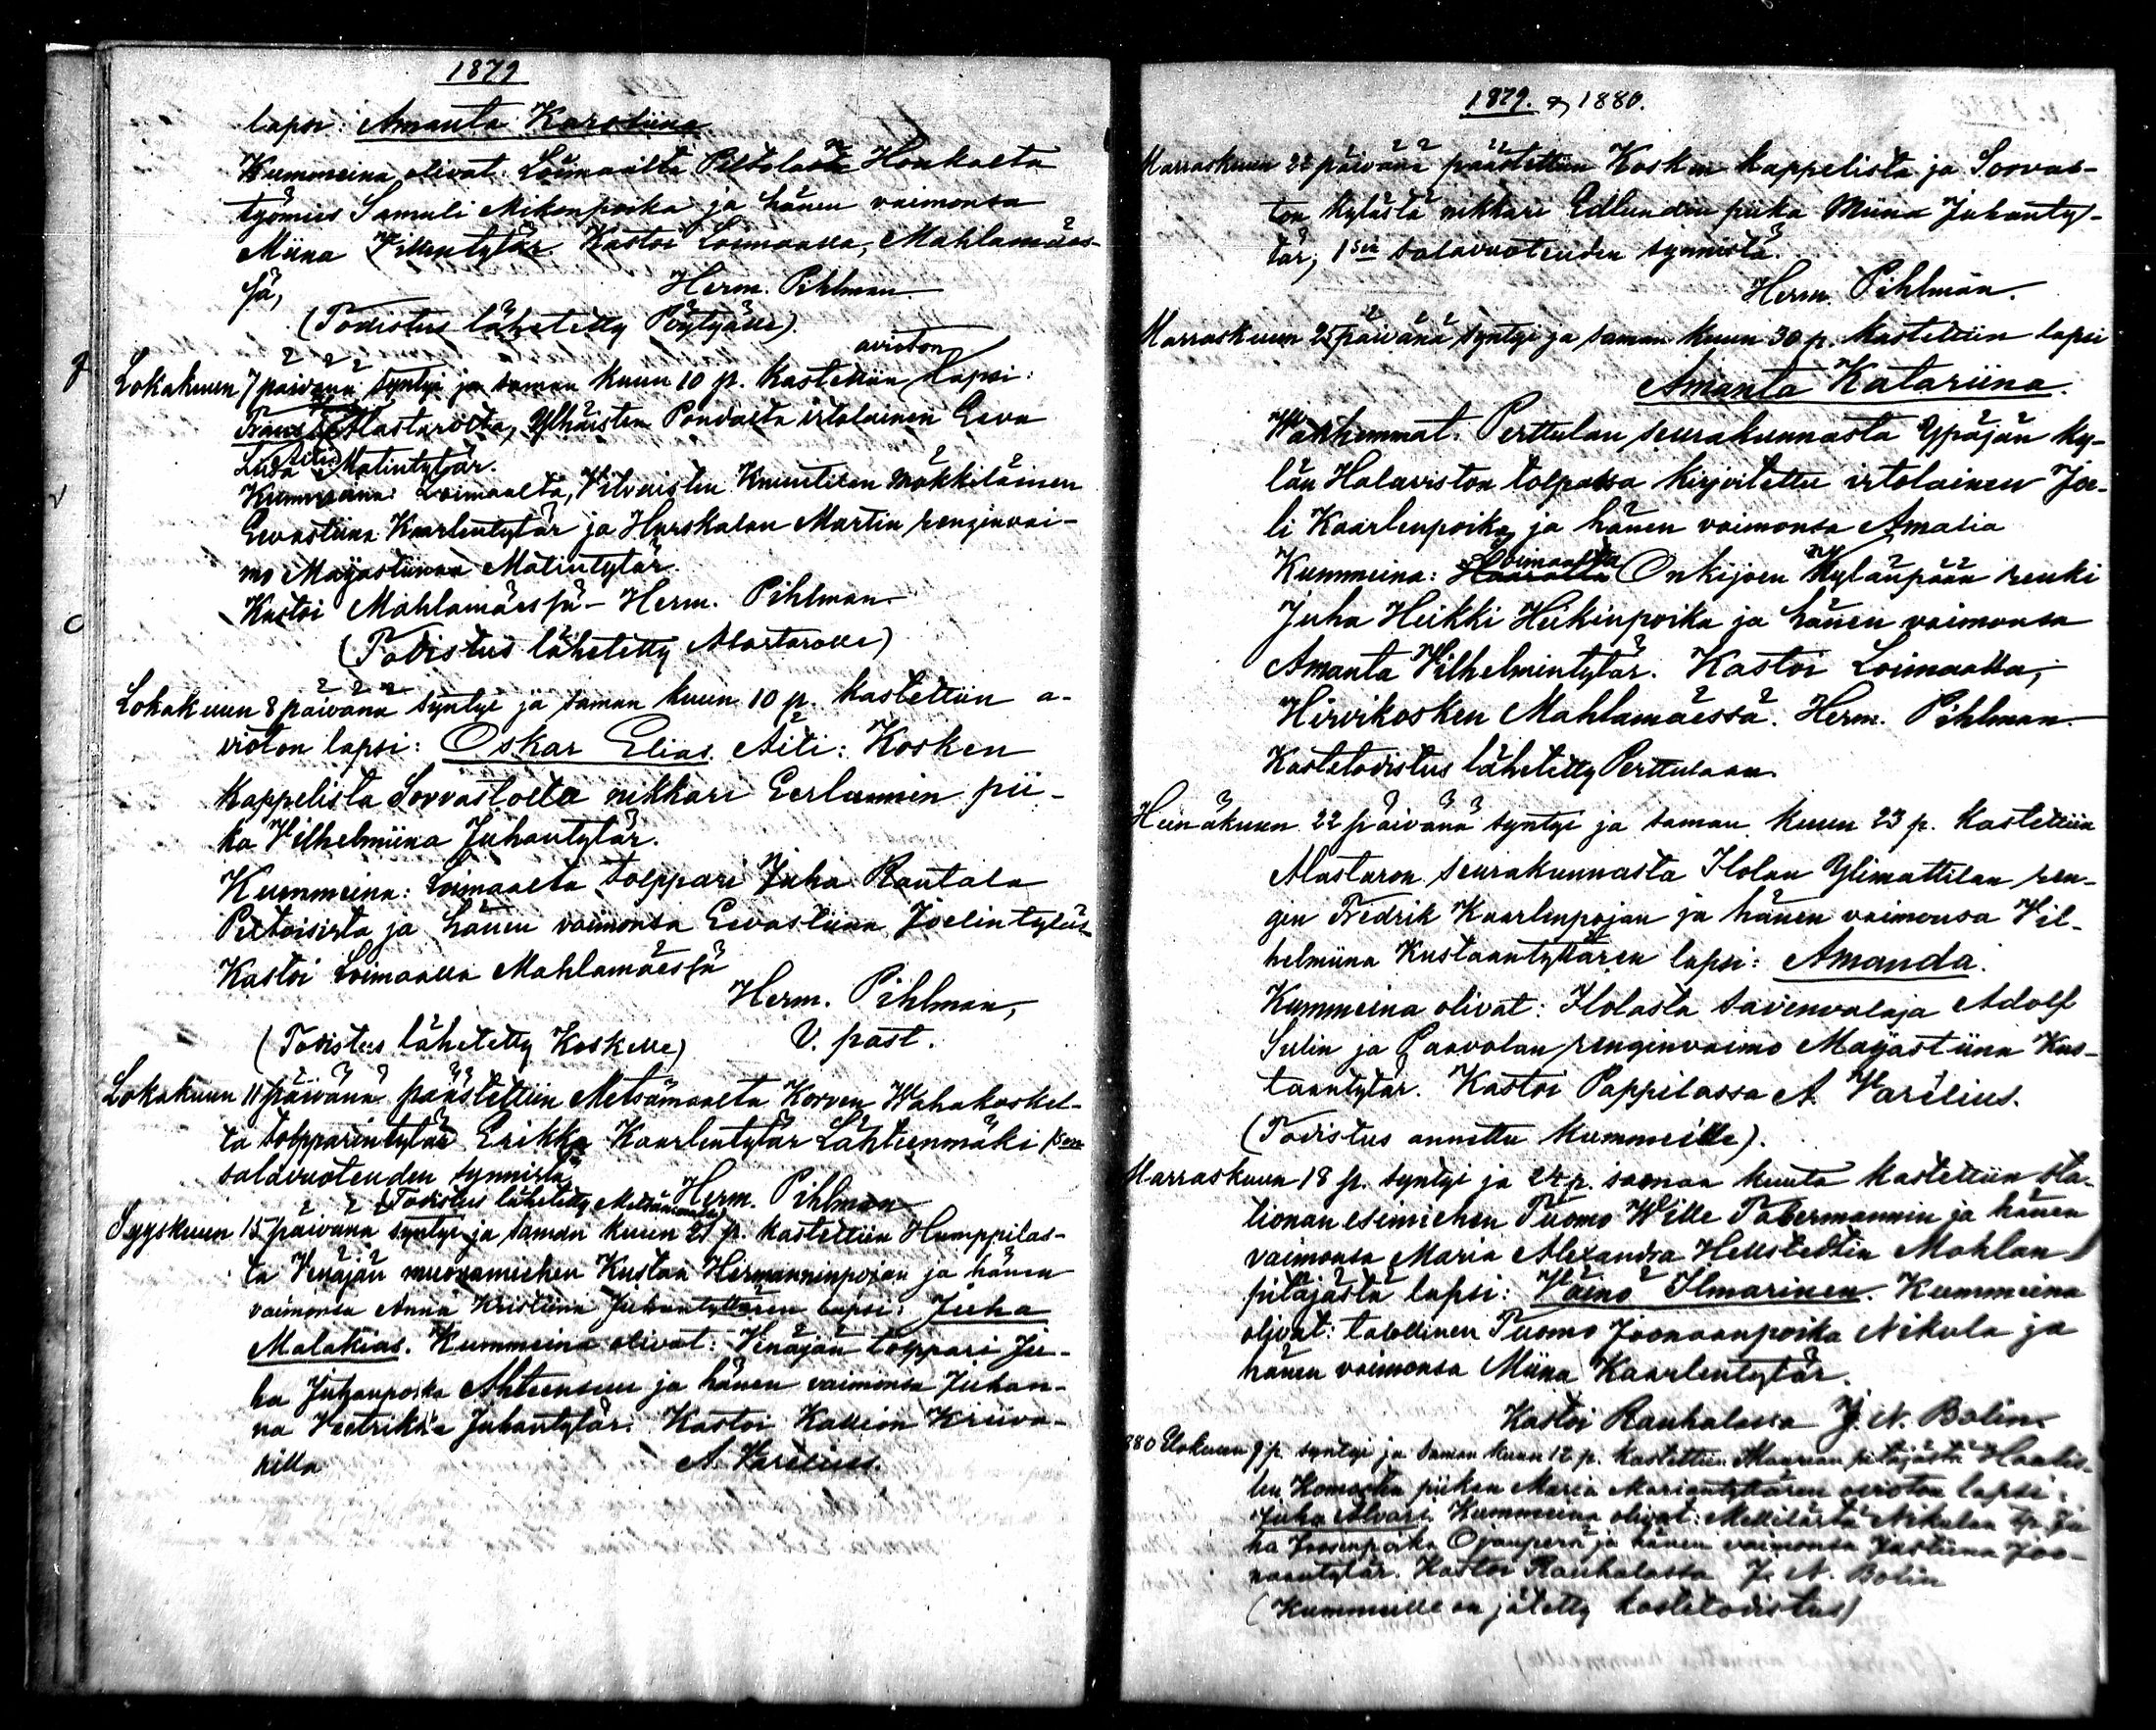 1879
lapsi: Amanta Karoliina
Kummeina olivat: Loimaalta Peltolasta Honkaeta
työmies Samuli Mikonpoika ja hänen vaimonsa
Miina Kastoi Loimaalla, Mahlamäes-
sä, Herm. Pihlman.
(Todistus lähetetty Pöytyälle)
avioton
Lokakuun 7 päivänä syntyi ja saman kuun 10 p. kastettiin lapsi:
Frans Alastarolta, Ylhäisten Pondaeta irtolainen Eeva
äiti
Matintytär.
Kummeina: Loimaalta, Vilvaisten Knuutilan mökkiläinen
Eevastiina Kaarlentytär ja Hurskalan Martin renginvai-
mo Majastiinaa Matintytär.
Kastoi Mahlamäessä – Herm. Pihlman.
(Todistus lähetetty Alastarolle)
Lokakuun 8 päivänä syntyi ja saman kuun 10 p. kastettiin a-
vioton lapsi: Oskar Elias. Äiti: Kosken
kappelista Sorvastolta nikkari Eerlunnin pii-
ka Vilhelmiina Juhantytär.
Kummeina: Loimaalta tolppari Juha Rautala
Peltoisista ja hänen vaimonsa Eevastiina Joelintytär
Kastoi Loimaalla Mahlamäessä
Herm. Pihlman,
(Todistus lähetetty Koskelle) V. past.
Lokakuun 11 päivänä päästettiin Metsämaalta Korven Wahakoskel-
ta tolpparintytär Erikka Kaarlentytär Lähteenmäki 1sen
salavuoteuden synnistä
(Todistus lähetetty Metsämaalle) Herm. Pihlman
Syyskuun 15 päivänä syntyi ja saman kuun 21 p. kastettiin Humppilas-
ta Venäjän muonamiehen Kustaa Hermanninpojan ja hänen
vaimonsa Anna Kristiina Juhantyttären lapsi: Juha
Malakias. Kummeina olivat: Venäjän tolppari Ju-
ha Juhanpoika Ahteensuu ja hänen vaimonsa Juhan-
na Vedrikka Juhantytär. Kastoi Kallion Kriiva-
rilla A. Varelius.
1879. & 1880.
Marraskuun 22 päivänä päästettiin Kosken kappelista ja Sorvas-
ton kylästä nikkari Edlundin piika Miina Juhanty-
tär, 1sen salavuoteuden synnistä.
Herm. Pihlman.
Marraskuun 25 päivänä syntyi ja saman kuun 30 p. kastettiin lapsi
Amanta Katariina.
Wanhemmat: Perttulan seurakunnasta Ypäjän ky-
län Halavriston tolpassa kirjoitettu irtolainen Joe-
li Kaarlenpoika ja hänen vaimonsa Amalia
Loimaalta
Kummeina: Onkijoen Kylänpään renki
Juha Heikki Heikinpoika ja hänen vaimonsa
Amanta Vilhelmintytär. Kastoi Loimaalla,
Hirvikosken Mahlamäessä. Herm. Pihlman.
Kastetodistus lähetetty Perttulaan.
Heinäkuun 22 päivänä syntyi ja saman kuun 23 p. kastettiin
Alastaron seurakunnasta Ilolan Ylimattilan ren-
gin Fredrik Kaarlenpojan ja hänen vaimonsa Vil-
helmiina Kustaantyttären lapsi: Amanda.
Kummeina olivat: Ilolasta savenvalaja Adolf
Sulin ja Paavolan renginvaimo Majastiina Kus-
taantytär. Kastoi Pappilassa A. Varelius.
(Todistus annettu kummeille).
Marraskuun 18 p. syntyi ja 24 p. samaa kuuta kastettiin sta-
tionan esimiehen Tuomo Wille Tabermannin ja hänen
vaimonsa Maria Alexandra Hellstedtin Mahlan
pitäjästä lapsi: Väinö Ilmarinen. Kummeina
olivat: talollinen Tuomo Joonaanpoika Nikula ja
hänen vaimonsa Miina Kaarlentytär.
Kastoi Rauhalassa J. N. Bolin.
880 Elokuun 9 p. syntyi ja saman kuun 12 p. kastettiin Maarian pitäjästä Haalis-
ten Komostin piikan Maria Mariantyttären avioton lapsi:
Juha Alvari. Kummeina olivat: Mellilästä Nikulan tp. Ju-
ha Joosenpoika Ojanperä ja hänen vaimonsa Justiina Joo-
naantytär. Kastoi Rauhalassa J. N. Bolin
(Kummeille on jätetty kastetodistus)